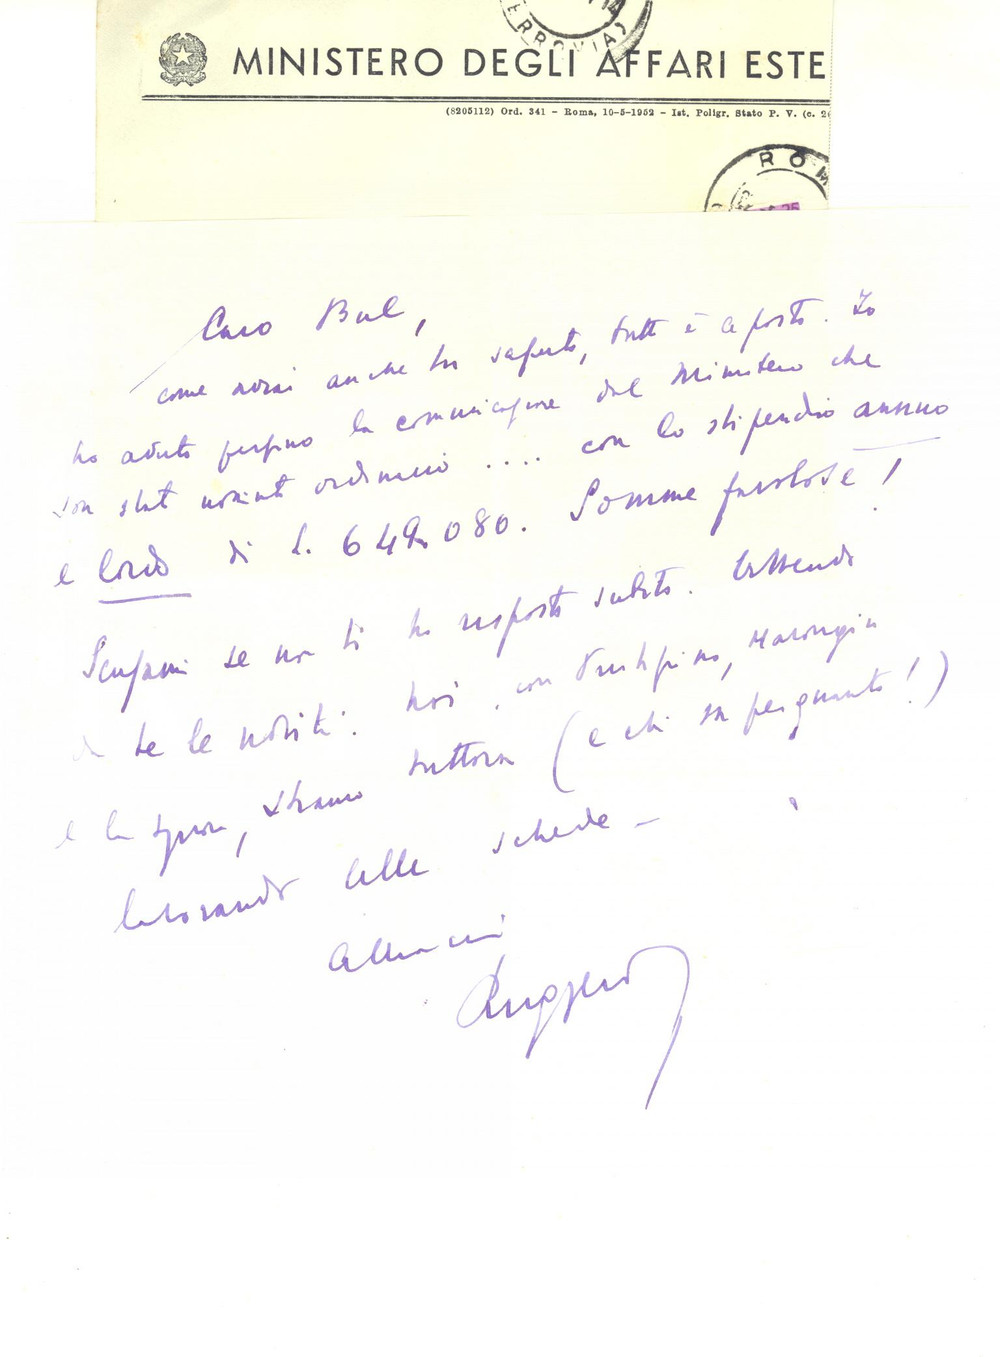 MINISTERO DEGLI AFFARI ESTE
(8205112) Ord. 341 - Roma, 10-5-1952 - Ist. Poligr. Stato P. V. (c. 2
ROM
Caro Bul,
come avrai anche tu saputo, tutto è a posto. Io
ho avuto perfino la comunicazione dal Ministero che
son stato nominato ordinario .... con lo stipendio annuo
e lordo di L. 649.080. Somme favolose!
Scusami se non ti ho risposto subito. Attendo
da te le novità. Noi, con Marongiu
e la signora, stiamo tuttora (e chi sa per quanto!)
lavorando alle schede -
Ruggero